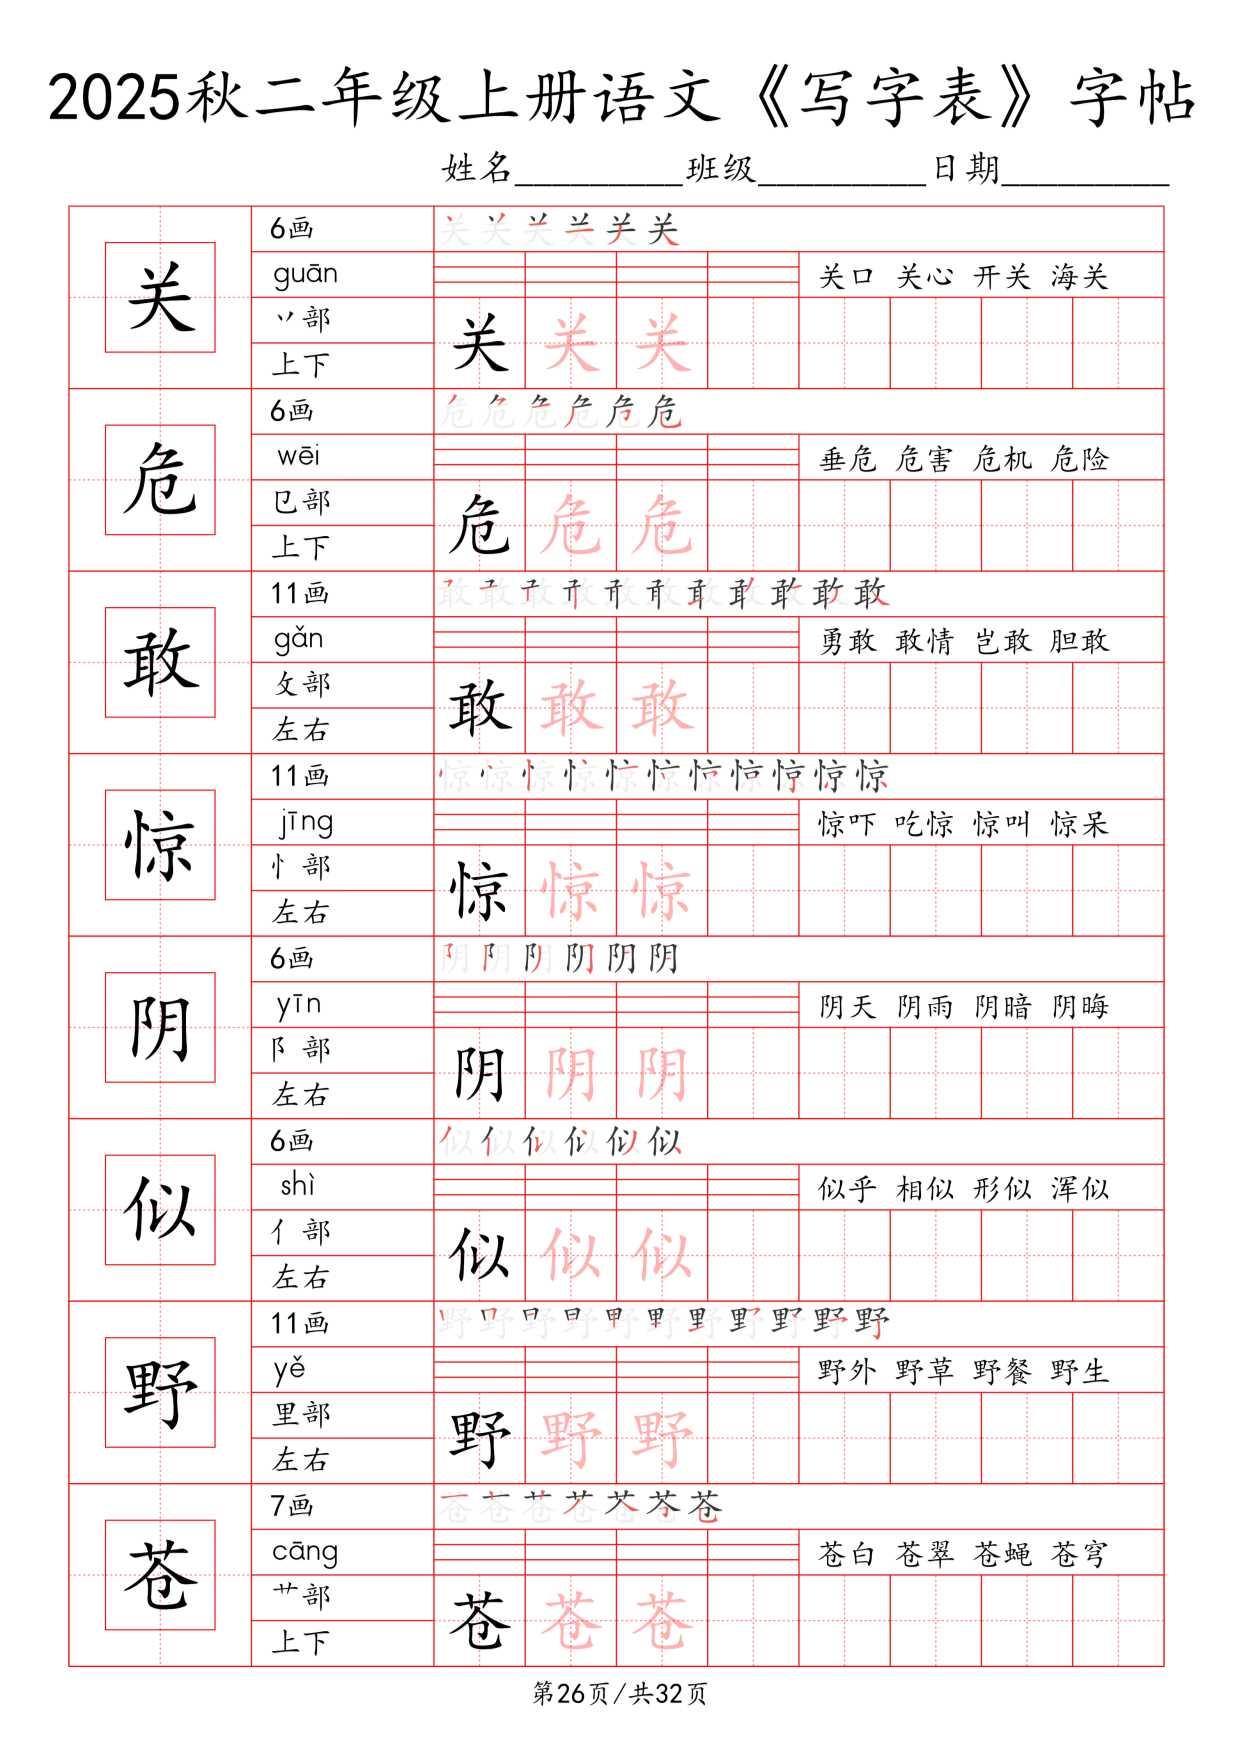 2025秋二年级上册语文《写字表》字帖
姓名_________班级_________日期_________
关
6画
关 关 关 关 关 关
guān
关口 关心 开关 海关
丷部
关 关 关
上下
危
6画
危 危 危 危 危 危
wēi
垂危 危害 危机 危险
㔾部
危 危 危
上下
敢
11画
敢 敢 敢 敢 敢 敢 敢 敢 敢 敢 敢
gǎn
勇敢 敢情 岂敢 胆敢
攵部
敢 敢 敢
左右
惊
11画
惊 惊 惊 惊 惊 惊 惊 惊 惊 惊 惊
jīng
惊吓 吃惊 惊叫 惊呆
忄部
惊 惊 惊
左右
阴
6画
阴 阴 阴 阴 阴 阴
yīn
阴天 阴雨 阴暗 阴晦
阝部
阴 阴 阴
左右
似
6画
似 似 似 似 似 似
shì
似乎 相似 形似 浑似
亻部
似 似 似
左右
野
11画
野 野 野 野 野 野 野 野 野 野 野
yě
野外 野草 野餐 野生
里部
野 野 野
左右
苍
7画
苍 苍 苍 苍 苍 苍 苍
cāng
苍白 苍翠 苍蝇 苍穹
艹部
苍 苍 苍
上下
第26页/共32页